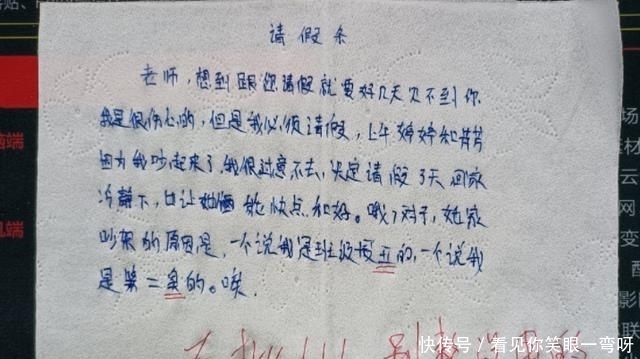 请假条
老师,想到跟您请假就要好几天见不到你
我是很伤心的,但是我必须请假,上午婷婷和芳芳
因为我吵起来了,我很过意不去,决定请假3天回家
冷静下,也让她俩能快点和好。哦,对了,她家
吵架的原因是,一个说我是班级最丑的,一个说我
是第二丑的。唉.
脑端
机端
场
云
网
变
影
快传号 / 看见你笑眼一弯呀